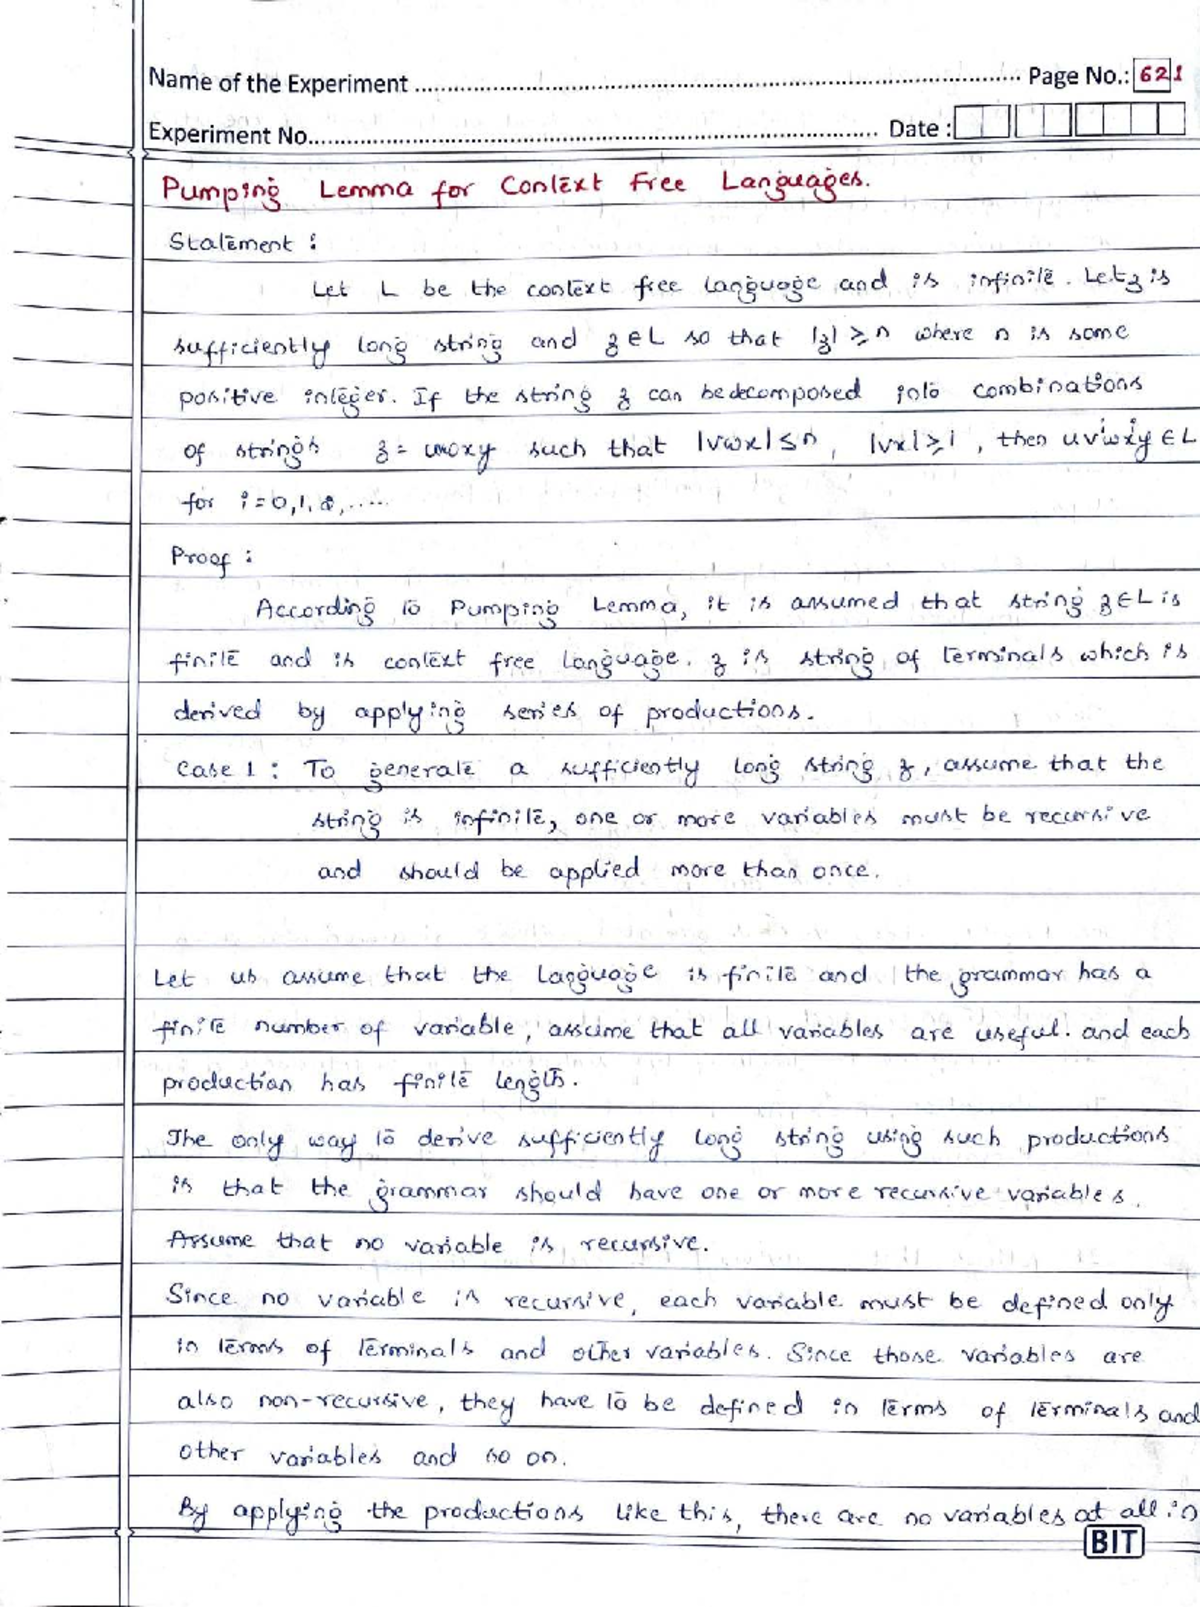 Name of the Experiment ........ Page No.: 621
Experiment No........ Date :
Pumping Lemma for Context Free Languages.
Statement :
Let L be the context free language and is infinite. Let z is
sufficiently long string and z ∈ L so that |z| ≥ n where n is some
positive integer. If the string z can be decomposed into combinations
of strings z = uvwxy such that |vwx| ≤ n, |vx| ≥ 1, then uvⁱwxⁱy ∈ L
for i = 0, 1, 2, .....
Proof :
According to Pumping Lemma, it is assumed that string z ∈ L is
finite and is context free language. z is string of terminals which is
derived by applying series of productions.
Case 1 : To generate a sufficiently long string z, assume that the
string is infinite, one or more variables must be recursive
and should be applied more than once.
Let us assume that the language is finite and the grammar has a
finite number of variable, assume that all variables are useful. and each
production has finite length.
The only way to derive sufficiently long string using such productions
is that the grammar should have one or more recursive variables.
Assume that no variable is recursive.
Since no variable is recursive, each variable must be defined only
in terms of terminals and other variables. Since those variables are
also non-recursive, they have to be defined in terms of terminals and
other variables and so on.
By applying the productions like this, there are no variables at all in
BIT